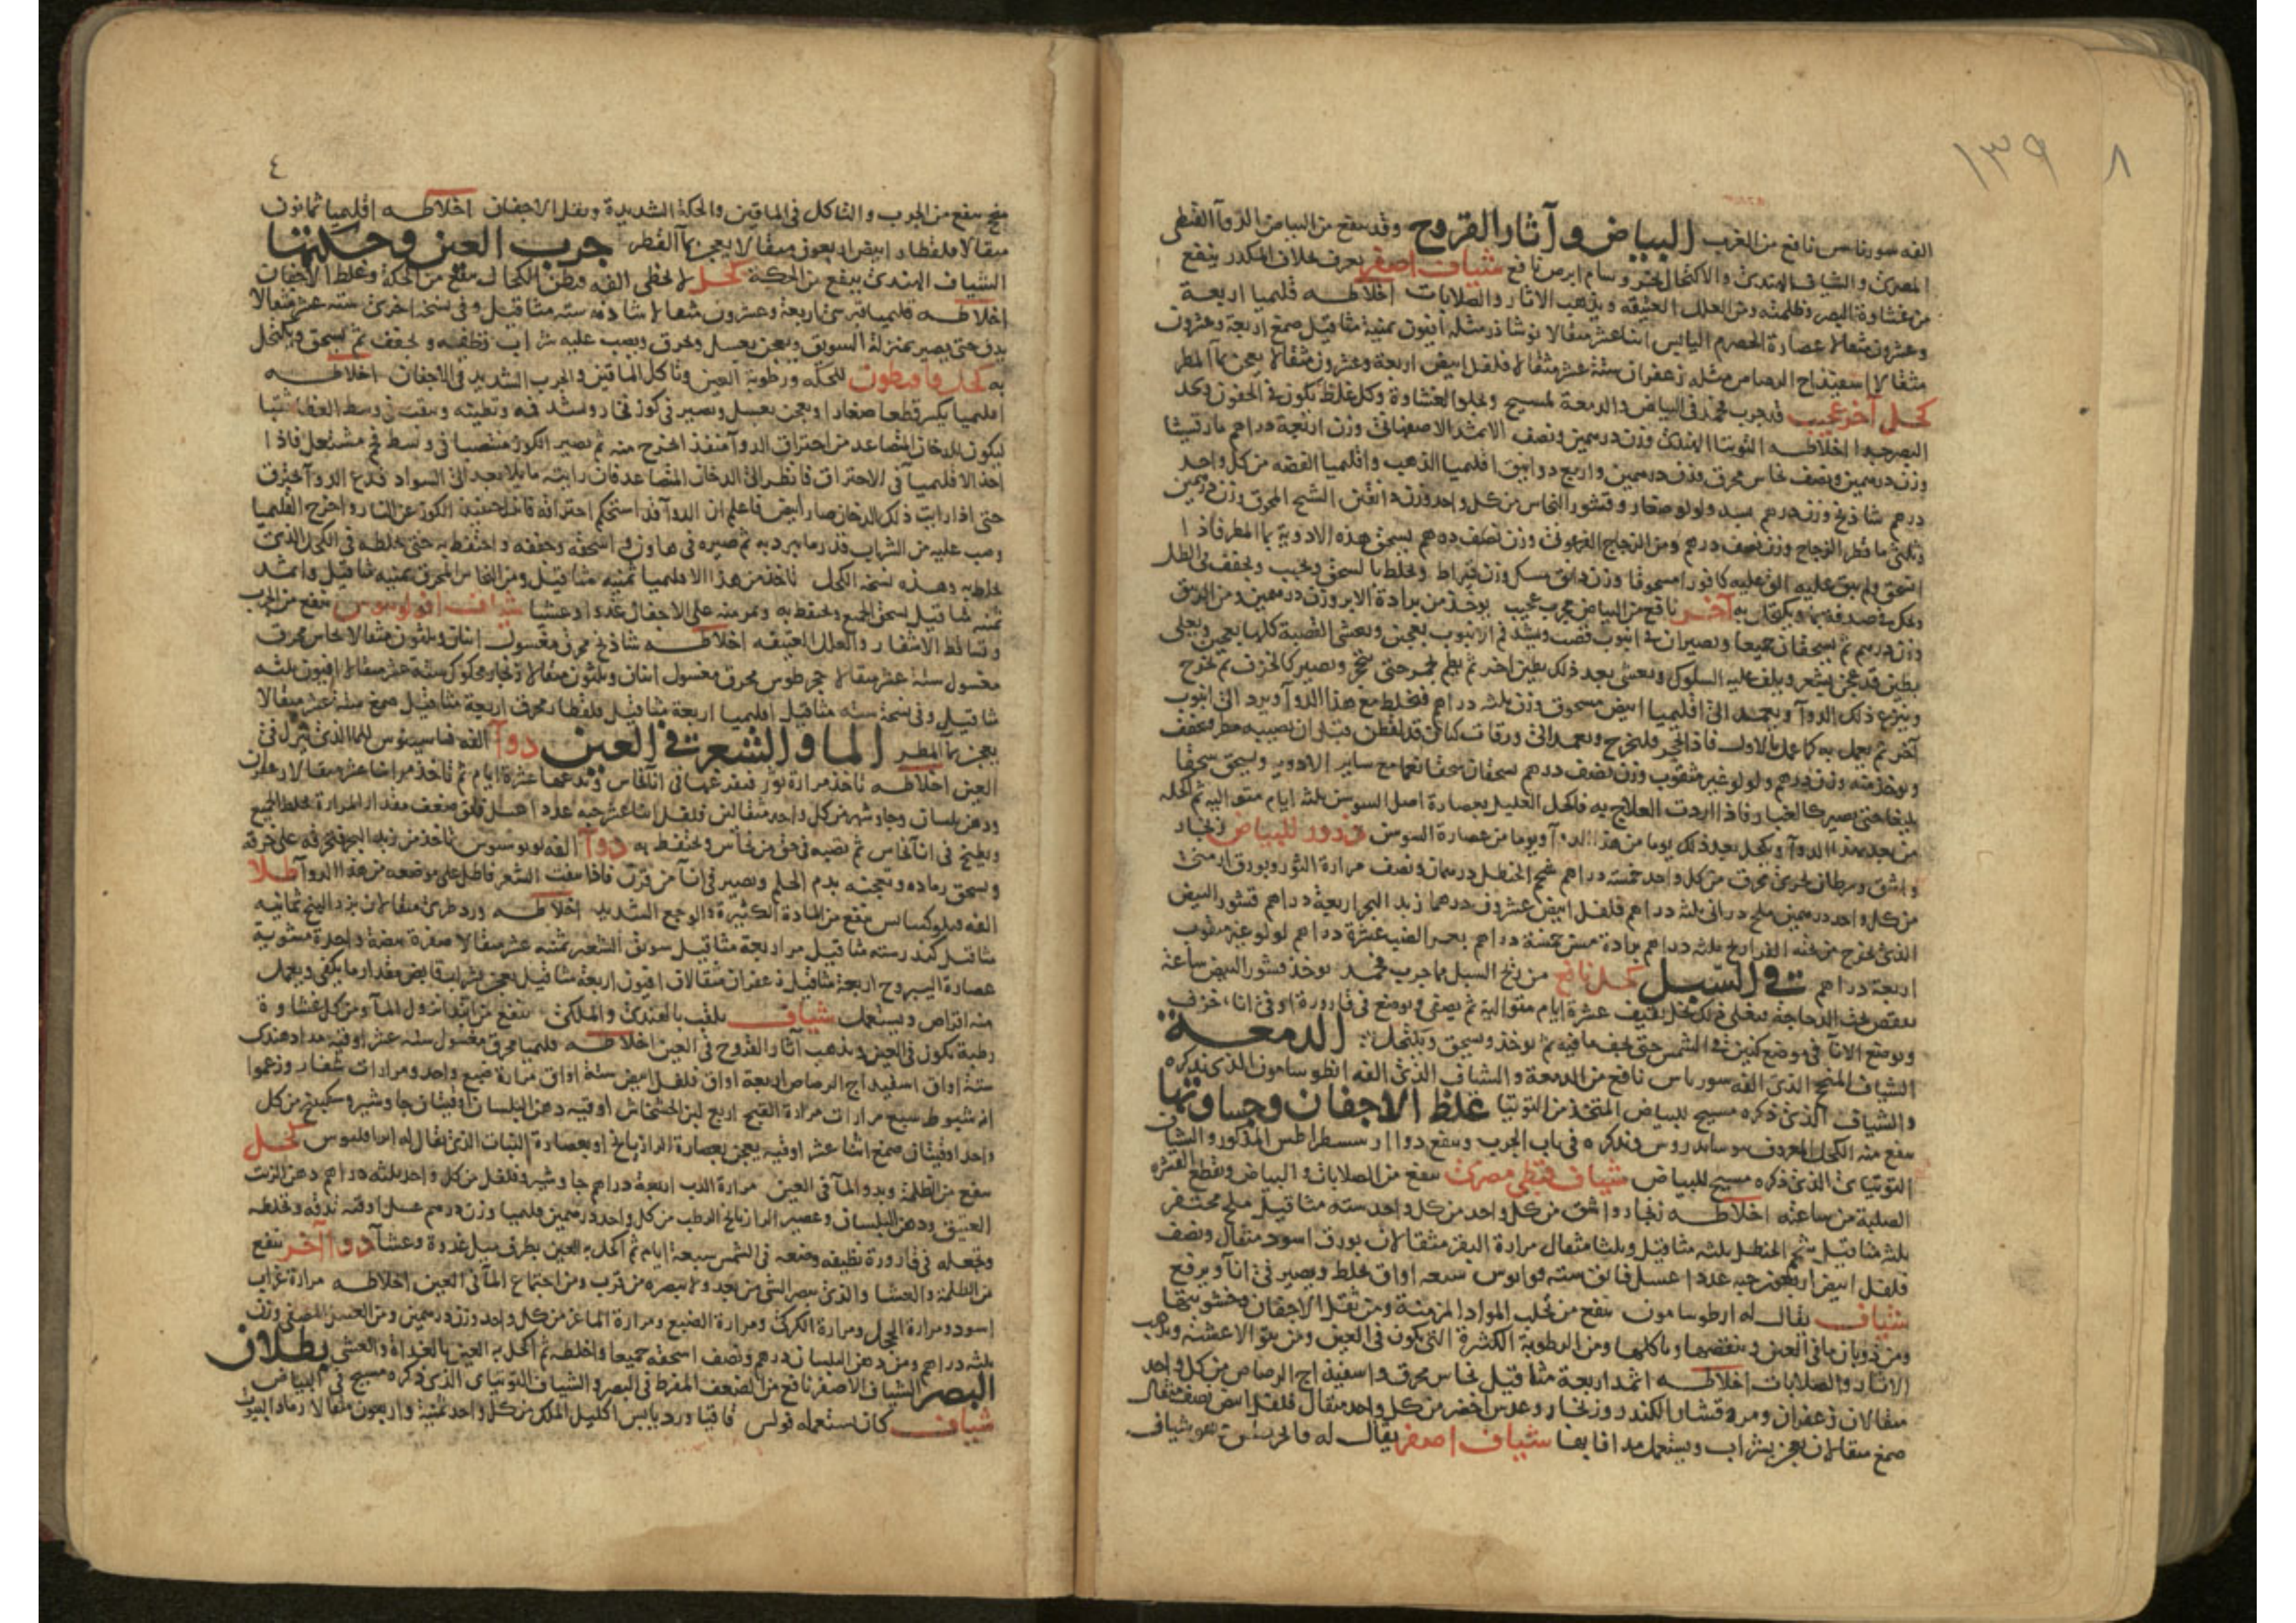 ١٣٩ ٨
الفه سورناس نافع من الغرب البياض وآثار القروح وقد ينفع من البياض الدوآ القبطى
المصرى والشياف الهندى والاكتحال بخر وسام ابرص نافع شياف اصفر يعرف بخلاف المكدر ينفع
من غشاوة البصر وظلمته ومن العلل العتيقه ويذهب الاثار والصلابات اخلاطه قليميا اربعة
وعشرون مثقالا عصارة الحصرم اليابس اثنا عشر مثقالا نوشادر مثله افيون ثمنية مثاقيل صمغ اربعة وعشرون
مثقالا اسفيذاج الرصاص مثله زعفران ستة عشر مثقالا فلفل ابيض اربعة وعشرون مثقالا يعجن بمآ المطر
كحل آخر عجيب قد جرب فحمد فى البياض والدمعة لمسيح ويجلو الغشاوة وكل غلظ يكون فى الجفون ويحد
البصر جيدا اخلاطه التوتيا الهندى وزن درهمين ونصف الاثمد الاصفهانى وزن اربعة دراهم مارقشيثا
وزن درهمين ونصف نحاس محرق وزن درهمين واربع دوانيق اقليميا الذهب واقليميا الفضه من كل واحد
درهم شاذنج وزن درهم بسد ولولو صغار وقشور النحاس من كل واحد وزن دانقين الشيح المحرق وزن درهمين
وثلثى ماقطر الزجاج وزن نصف درهم ومن الزجاج الفرعونى وزن نصف درهم يسحق هذه الادوية بما المطر فاذا
انسحق ولم يبق عليه القى عليه كافورا مسحوقا وزن دانق مسك وزن قيراط ويخلط بالسحق ويحبب ويجفف فى الظل
ويحك فى صدفه بما ويكتحل به آخر نافع من البياض مجرب عجيب يوخذ من برادة الابر وزن درهمين ومن الزيبق
وزن درهم ثم يسحقان جميعا ويصيران فى انبوب قصب ويسد فم الانبوب بعجين وتغشى القصبة كلها بعجين ويطلى
بطين قد عجن بشعر ويلف عليه السلوك وتغشى بعد ذلك بطين اخر ثم يطم بجمر حتى يحمر ويصير كالخزف ثم تخرج
وينزع ذلك الدوآ ويعمد الى اقليميا ابيض مسحوق وزن ثلثه دراهم فيخلط مع هذا الدوآ ويرد الى انبوب
آخر ثم يعمل به كما عمل بالاول فاذا احمر فليخرج ويعمد الى ورقات كتاعى قد لقطن قبل ان يصيبه مطر ويجفف
ويوخذ منه وزن درهم ولولو غير مثقوب وزن نصف درهم يسحقان سحقا نعما مع ساير الادويه ويسحق سحقا
بليغا حتى يصير كالغبار فاذا اردت العلاج به فاكحل العليل بعصارة اصل السوسن ثلثه ايام متواليه ثم اكحله
من بعد بهذا الدوآ ويكحل بعد ذلك يوما من هذا الدوآ ويوما من عصارة السوسن ذرور للبياض زنجار
واشق وسرطان بحرى محرق من كل واحد خمسه دراهم شحم الحنظل درهمان ونصف مرارة الثور وبورق ارمنى
من كل واحد درهمين ملح درانى ثلثه دراهم فلفل ابيض عشرون درهما زبد البحر اربعة دراهم قشور البيض
الذى تخرج من تحته الفراريخ ثلثه دراهم برادة مسن خمسة دراهم بعر الضب عشرة دراهم لولو غير مثقوب
اربعة دراهم فى السبل كحل نافع من ريح السبل مما جرب فحمد يوخذ قشور البيض ساعة
يتفقص تحت الدجاجة فيغلى فى ذلك بخل ثقيف عشرة ايام متوالية ثم يصفى ويوضع فى قارورة او فى اناء خزف
ويوضع الانآ فى موضع كنين فى الشمس حتى يجف مافيه ثم يوخذ ويسحق ويكتحل الدمعة
الشياف المنجح الذى الفه سورياس نافع من الدمعة والشياف الذى الفه انطوسامون الذى نذكره
والشياف الذى ذكره مسيح للبياض المتخذ من التوتيا غلظ الاجفان وجساوتها
ينفع منه الكحل المعروف سوساندروس ونذكره فى باب الجرب وينفع دوا ارسسطراطس المذكور والشياف
التوتياى الذى ذكره مسيح للبياض شياف قبطى مصرى ينفع من الصلابات والبياض ويقطع القشره
الصلبة من ساعته اخلاطه زنجار واشق من كل واحد من كل واحد سته مثاقيل ملح محتفر
ثلثه مثاقيل شحم الحنظل ثلثه مثاقيل وثلثا مثقال مرارة البقر مثقالان بورق اسود مثقال ونصف
فلفل ابيض اربعون حبه عددا عسل فائق سته قوانوس سبعه اواق يخلط ويصير فى انآ ويرفع
شياف يقال له ارطوسامون ينفع من تحلب المواد المزمنة ومن ثقل الاجفان وخشونتها
ومن ذوبان مافى العين ونقصها وتاكلها ومن الرطوبة الكثيرة التى يكون فى العين ومن نتو الاغشيه ويذهب
الاثار والصلابات اخلاطه اثمد اربعة مثاقيل نحاس محرق واسفيذاج الرصاص من كل واحد
مثقالان زعفران ومر وقشار الكندر وزنجار وعدس اخضر من كل واحد مثقال فلفل ابيض نصف مثقال
صمغ مثقالان يعجن بشراب ويستعمل مدافا بها شياف اصفر يقال له فالحريش وهو شياف
٤
منجح ينفع من الجرب والتاكل فى الماقين والحكة الشديدة وثقل الاجفان اخلاطه اقليميا ثمانون
مثقالا قلقطار ابيض اربعون مثقالا يعجن بمآ القطر جرب العين وحكتها
الشياف الهندى ينفع من الحكة كحل لالحظى الفه قيطن الكحال ينفع من الحكة وغلظ الاجفان
اخلاطه قليميا قبرسى اربعة وعشرون مثقالا شاذنه سته مثاقيل وفى نسخه اخرى سته عشر مثقالا
يدق حتى يصير بمنزلة السويق ويعجن بعسل ويحرق ويصب عليه شراب ونطفه ويجفف ثم يسحق ويكتحل
به كحل قاقيطون للحكه ورطوبة العين وتاكل الماقين والجرب الشديد فى الاجفان اخلاطه
اقليميا يكسر قطعا صغارا ويعجن بعسل ويصير فى كوز فخار وتشد فيه وتطينه ويثقب فى وسط الغطا ثقبا
ليكون للدخان المتصاعد من احتراق الدوآ منفذ الخرج منه ثم يصير الكوز منتصبا فى وسط فحم مشتعل فاذا
اخذ الاقليميآ فى الاحتراق فانظر الى الدخان المتصاعد فان رايته مايلا بعد الى السواد فدع الدوآ يحترق
حتى اذا رايت ذلك الدخان صار ابيض فاعلم ان الدوآ قد استحكم احتراقه فانزل حينئذ الكوز عن النار واخرج القليميا
وصب عليه من الشراب قدر ما يبرد به ثم صيره فى هاون واسحقه وجففه واحتفظ به حتى تخلطه فى الكحل الذى
يخلط به وهذه نسخة الكحل تاخذ من هذا الاقليميا ثمنية مثاقيل ومن النحاس المحرق ثمنيه مثاقيل واثمد
ثمنيه مثاقيل يسحق الجميع ويحتفظ به ويمر منه على الاجفان غدوا وعشا شياف افولونيوس ينفع من الجرب
وتساقط الاشفار والعلل العتيقه اخلاطه شاذنج محرق مغسول اثنان وثلثون مثقالا نحاس محرق
مغسول ستة عشر مثقالا حجر طوس محرق مغسول اثنان وثلثون مثقالا زنجار محكوك ستة عشر مثقالا افيون ثلثه
مثاقيل وفى نسخة سته مثاقيل اقليميا اربعة مثاقيل قلقطار محرق اربعة مثاقيل صمغ ستة عشر مثقالا
يعجن بمآ المطر المآ والشعر فى العين دوآ الفه فاسيوس للما الذى ينزل فى
العين اخلاطه تاخذ مرارة ثور فتفرغها فى انآ نحاس وتدعها عشرة ايام ثم تاخذ مر اثنا عشر مثقالا زعفران
ودهن بلسان وجاوشير من كل واحد مثقالين فلفل اثنا عشر حبه عددا عسل فائق ضعف مقدار المرارة يخلط الجميع
ويطبخ فى انآ نحاس ثم تصبه فى حق من نحاس وتحتفظ به دوآ الفه لونوسوس تاخذ من زبد البحر فتحرقه على خرقه
ويسحق رماده وتعجنه بدم الحلم ويصير فى انآ من قرن فاذا نتفت الشعر فاطل على موضعه من هذا الدوآ طلا
الفه فيلوكسانس ينفع من المادة الكثيرة والوجع الشديد اخلاطه ورد طرى مثقالان بزر البنج ثمانيه
مثاقيل كندر سته مثاقيل مر اربعة مثاقيل سويق الشعير ثمنيه عشر مثقالا صفرة بيضة واحدة مشوية
عصارة اليبروح اربعة مثاقيل زعفران مثقالان افيون اربعة مثاقيل يعجن بشراب قابض مقدار ما يكفى ويعمل
منه اقراص ويستعمل شياف يلقب بالهندى والملكى ينفع من ابتدا نزول المآ ومن كل غشاوة
رطبة تكون فى العين ويذهب آثار القروح فى العين اخلاطه قليميا محرق مغسول سته عشر اوقيه مداد هندى
ستة اواق اسفيذاج الرصاص اربعة اواق فلفل ابيض ستة اواق مرارة ضبع واحد ومرارات شفار وزعموا
انه شبوط سبع مرارات مرارة القبج اربع لبن الخشخاش اوقيه دهن البلسان اوقيتان جاوشير وسكبينج من كل
واحد اوقيتان صمغ اثنا عشر اوقيه يعجن بعصارة الرازيانج او بعصارة النبات الذى يقال له ابرافليوس كحل
ينفع من الظلمة وبدو المآ فى العين مرارة الدب اربعة دراهم جاوشير وفلفل من كل واحد ثلثه دراهم دهن الزيت
العتيق ودهن البلسان وعصير الرازيانج الرطب من كل واحد درهمين قليميا وزن درهم عسل اوقيه تدقه وتخلطه
وتجعله فى قارورة نظيفه وضعه فى الشمس سبعة ايام ثم اكحل به العين بطرف ميل غدوة وعشآ دوآ آخر ينفع
من الظلمة والعشا والذى يبصر الشى من بعد ولا يبصره من قرب ومن اجتماع المآ فى العين اخلاطه مرارة غراب
اسود ومرارة الحجل ومرارة الكركى ومرارة الضبع ومرارة الماعز من كل واحد وزن درهمين ومن العسل المصفى وزن
ثلثه دراهم ومن دهن البلسان درهم ونصف اسحقه جميعا واخلطه ثم اكحل به العين بالغداة والعشى بطلان
البصر الشياف الاصفر نافع من الضعف المفرط فى البصر والشياف التوتياى الذى ذكره مسيح فى البياض
شياف كان يستعمله فولس قاقيا ورد يابس اكليل الملك من كل واحد ثمنية واربعون مثقالا رماد البيوت